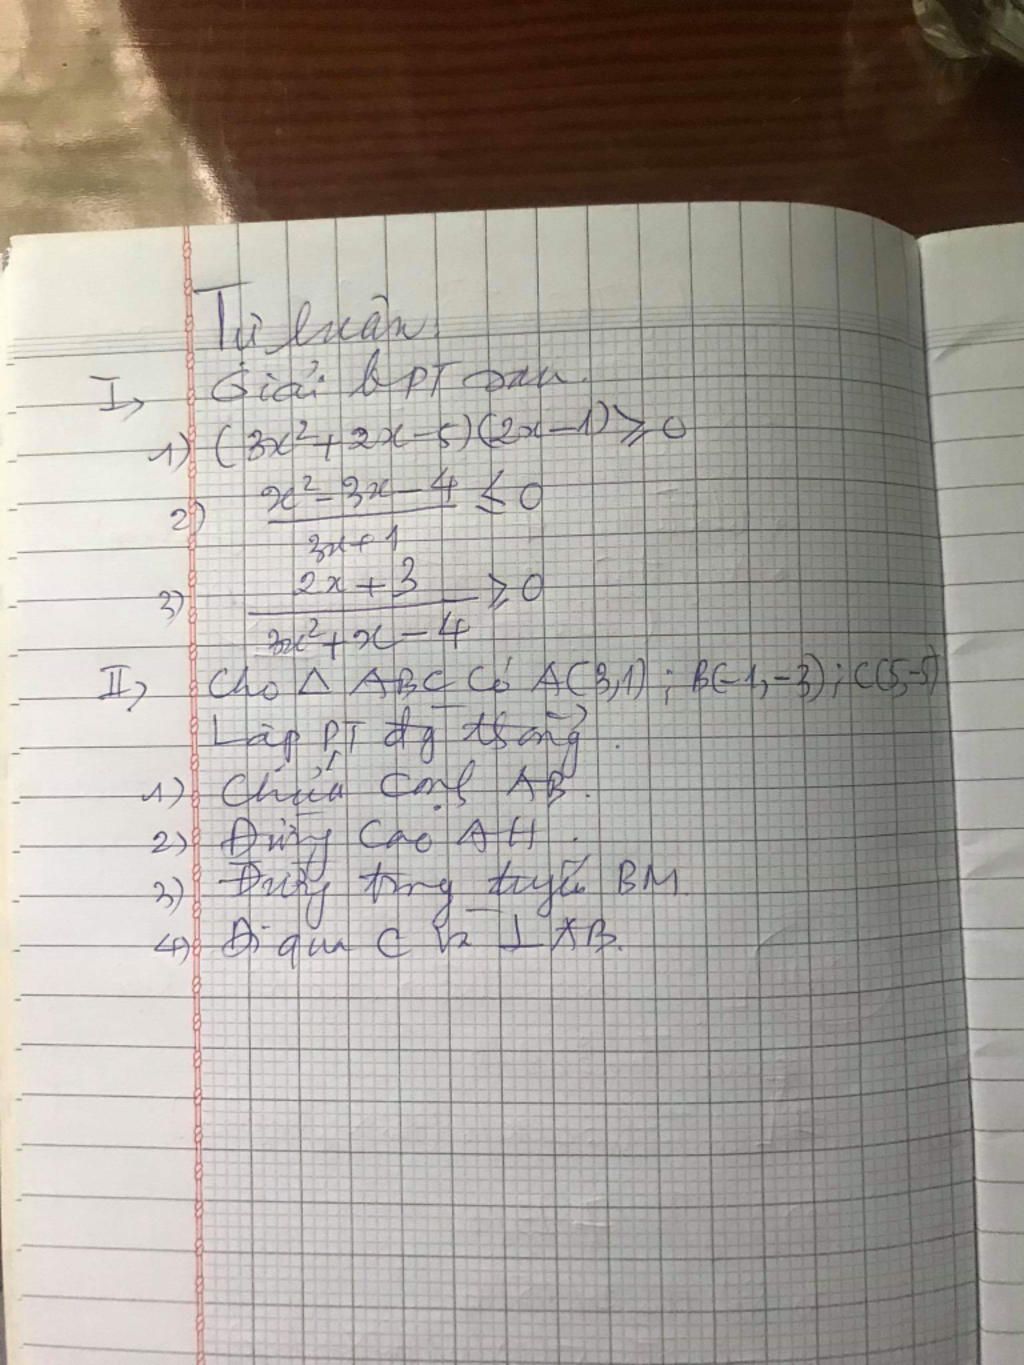 Tự luận.
I, Giải bPT sau.
1) (3x²+2x-5)(2x-1)≥0
2) x²-3x-4 ≤ 0
3x+1
3) 2x+3 ≥0
3x²+x-4
II, Cho Δ ABC có A(3,1); B(-1,-3); C(5,-5)
Lập PT đg thẳng.
1) Chứa cạnh AB.
2) Đường cao AH.
3) Đường trung tuyến BM.
4) Đi qua C và ⊥ AB.